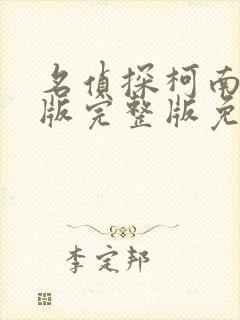 名偵探柯南
版完整版免
李定邦